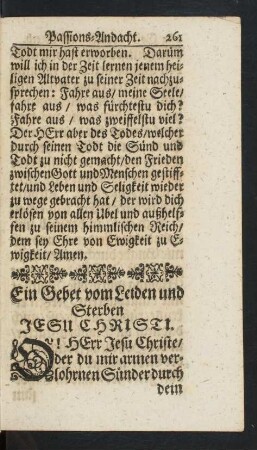 Passions-Andacht. 261
Todt mir hast erworben. Darum
will ich in der Zeit lernen jenem hei-
ligen Altvater zu seiner Zeit nachzu-
sprechen: Fahre aus/ meine Seele/
fahre aus / was fürchtestu dich?
Fahre aus / was zweiffelstu viel?
Der HErr aber des Todes/welcher
durch seinen Todt die Sünd und
Todt zu nicht gemacht/den Frieden
zwischen Gott und Menschen gestiff-
tet/und Leben und Seligkeit wieder
zu wege gebracht hat / der wird dich
erlösen von allen Ubel und außhelf-
fen zu seinem himmlischen Reich/
dem sey Ehre von Ewigkeit zu E-
wigkeit/ Amen.
Ein Gebet vom Leiden und
Sterben
JESU CHRISTI.
O! HErr Jesu Christe/
der du mir armen ver-
lohrnen Sünder durch
dein